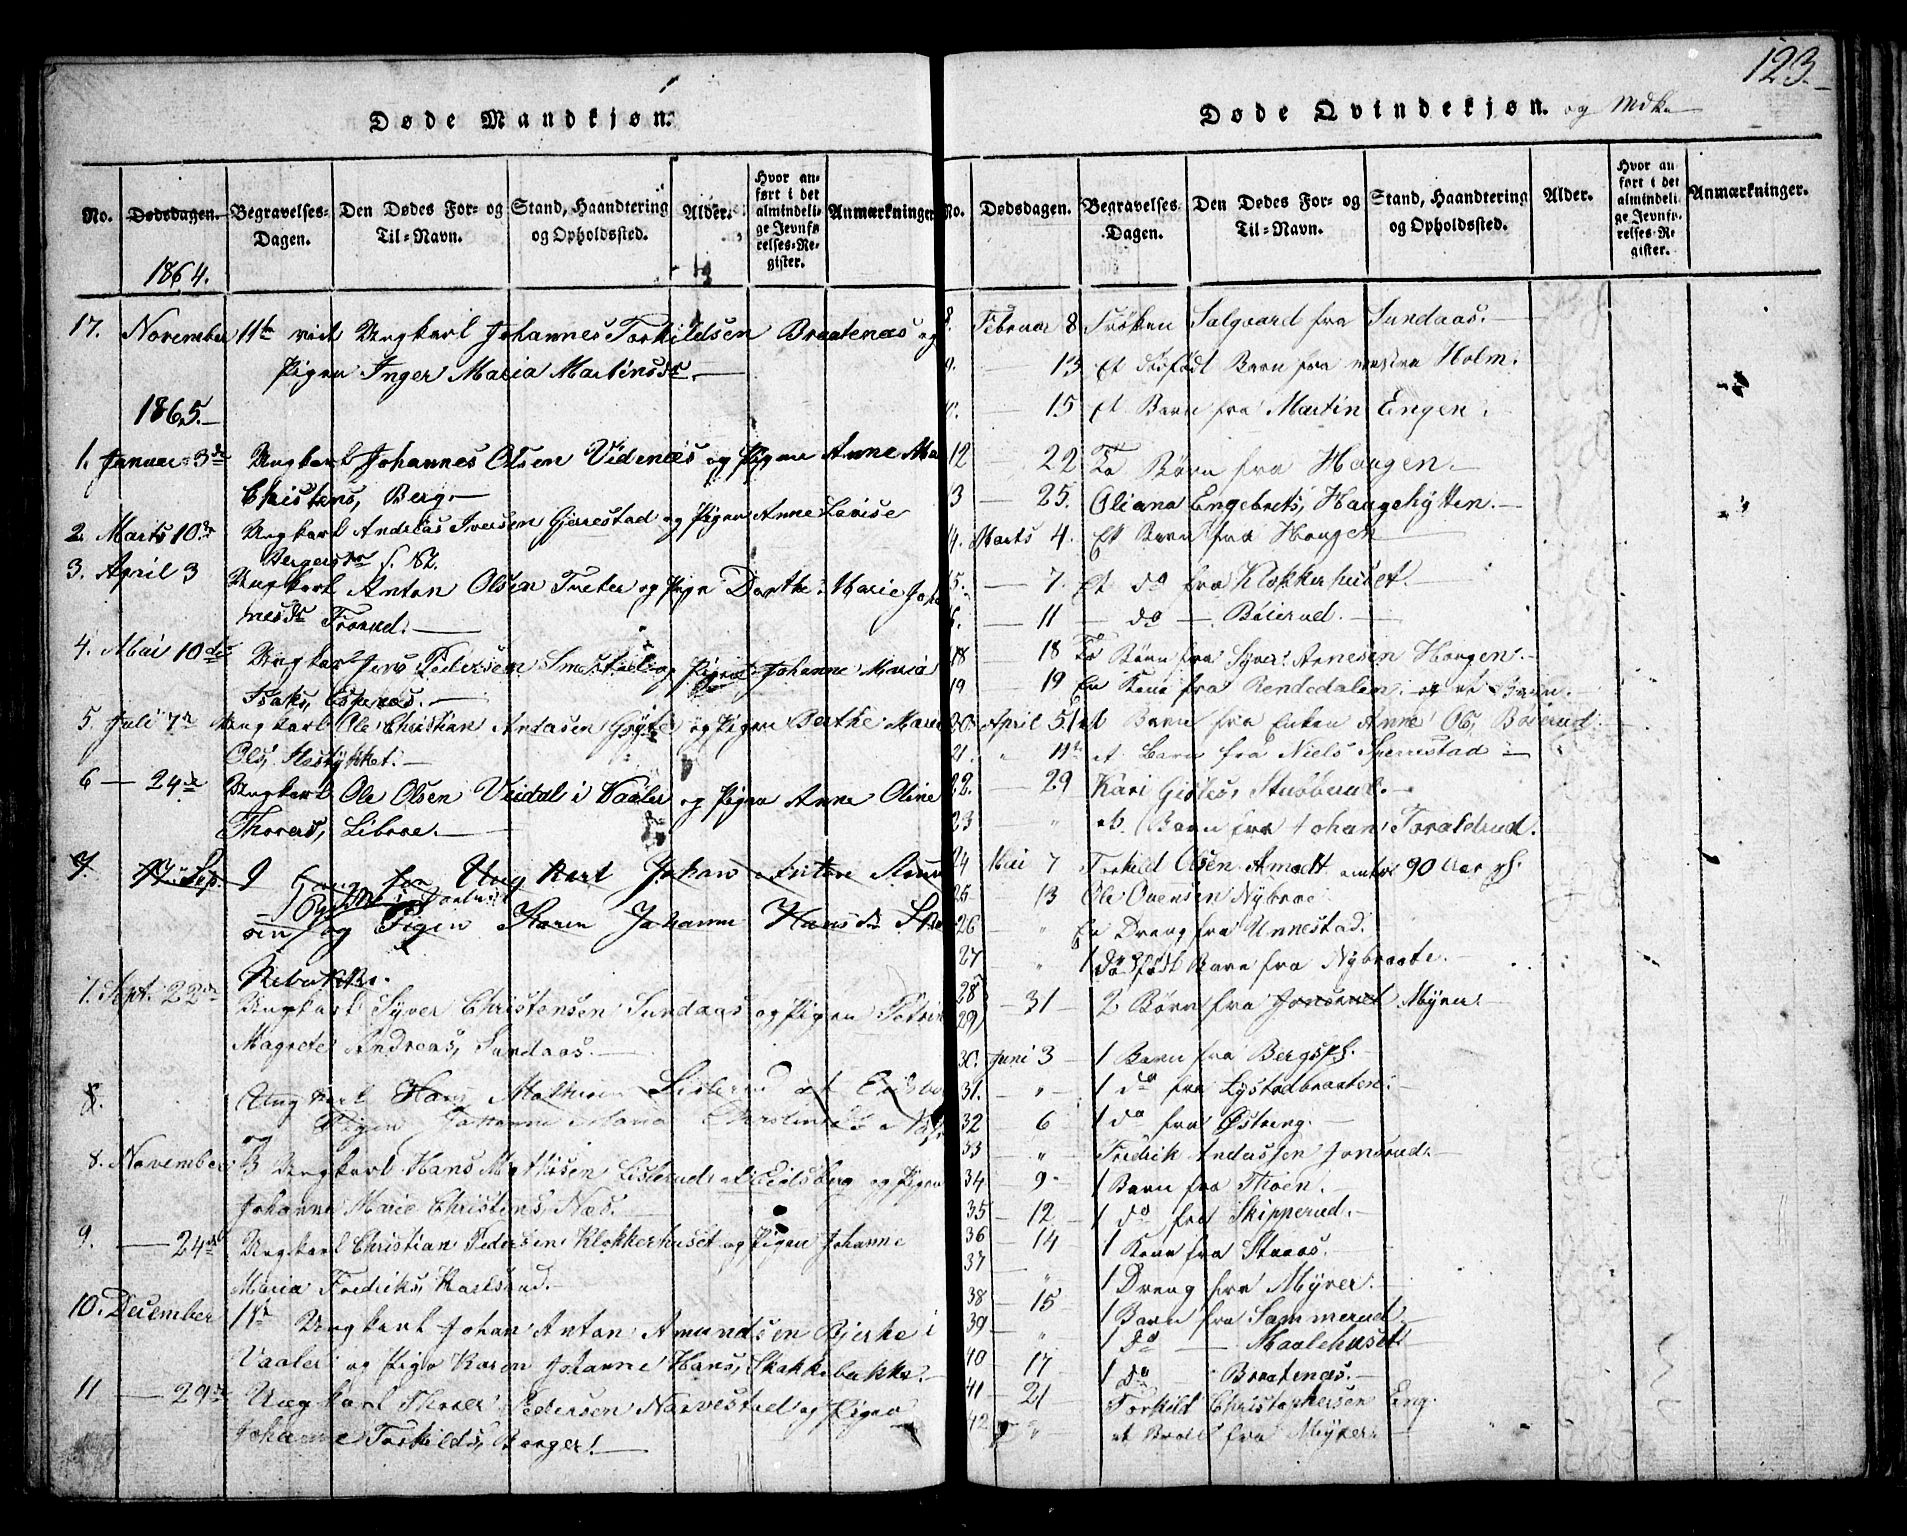 123.
Døde Mandkjøn.
No. Dødsdagen. Begravelses-Dagen. Den Dødes For- og Til-Navn. Stand, Haandtering og Opholdssted. Alder. Hvor anført i det almindelige Jevnførelses-Register. Anmærkninger
1864.
17. November 11te med Ungkarl Johannes Torkildsen Braatenæs og
Pigen Inger Maria Martinsdr.
1865.
1. Januar 3de Ungkarl Johannes Olsen Videnæs og Pigen Anne Ma
Christens, Berg.
2. Marts 10de Ungkarl Andreas Iversen Gjerrestad og Pigen Anne Lovise
3. April 3 Ungkarl Anton Olsen Tveter og Pigen Dorthe Marie Joha
nesdr Frorud.
4. Mai 10de Ungkarl Jens Pedersen Smestad og Pigen Johanne Maria
Isaks, Espenæs.
5. Juli 7de Ungkarl Ole Christian Andasen og Pigen Berthe Marie
Ols,
6 — 24de Ungkarl Ole Olsen Vridal i Vaaler og Pigen Anne Oline
Thorers, Libroe.
7 Sep. Ung Karl Johan Anton Amun
sen og Pigen Karen Johanne Hansdr
7. Sept. 22de Ungkarl Syver Christensen Sundaas og Pigen Petrin
Magrete Andreas, Sundaas.
8. Ung karl Hans Mathisen Listerud
og Pigen Johanne Maria
8. November 3 Ungkarl Hans Mathisen Listerud i Eidsberg og Pigen
Johanne Marie Christens, Næs.
9. — 24de Ungkarl Christian Pedersen Klokkerhuset og Pigen Johanne
Maria Fredriks, Karlsrud.
10. December 1ste Ungkarl Johan Anton Amundsen Bjerke i
Vaaler og Pige Karen Johanne Hans, Skakkebakke.
11 — 29de Ungkarl Thorer Pedersen Narvestad og Pigen
Johanne Torkilds, Berger.
Døde Qvindekjøn. og Mdk.
No. Dødsdagen. Begravelses-Dagen. Den Dødes For- og Til-Navn. Stand, Haandtering og Opholdssted. Alder. Hvor anført i det almindelige Jevnførelses-Register. Anmærkninger.
8. Februar 8 Frøken Salgaard fra Sundaas.
9. — 13 Et dødfødt Barn fra Holm.
— 15 Et Barn fra Martin Engen.
12 22 To Børn fra Haugen.
13 — 25. Oliana Engebrets, Haugehytten.
14. Marts 4. Et Barn fra Haugen
15. — 7. Et do fra Klokkerhuset.
— 11 — do — Bøierud.
18 — 18 To Børn fra Syver Arnesen Haugen.
19 — 19 En Kone fra Rendedalen og et Barn.
20. April 5. et Barn fra Enken Anne Ols, Bøierud.
21. " 11te et Barn fra Niels Sperrestad
22. — 29 Kari Gislès, Stubberud.
23 " et Barn fra Johan Toraldrud.
24 Mai 7 Torkild Olsen Amodt 90 Aar
25 — 13 Ole Ovensen Nybroe.
26 — " En Dreng fra Unnestad.
27 " 1 dødfødt Barn fra Nybraate.
28
29 — 31 2 Børn fra Jonsrud Myren.
30. Juni 3 1 Barn fra Bergspl.
31. — " 1 do fra Lystadbraaten.
32 — 6 1 do fra Østreng.
33 " Fredrik Andassen Jonsrud.
34 — 9 1 Barn fra Thoen.
35 — 12 1 do fra Skipperud.
36 — 14 1 Kone fra Staaos.
37 " 1 Dreng fra Myrer.
38 — 15 1 Barn fra Sammerud.
39 — " 1 do — Maalehuset
40 — 17 1 do Braatenæs.
41 — 21 Torkild Christophersen Eng.
42 — " et Barn fra Myrer.